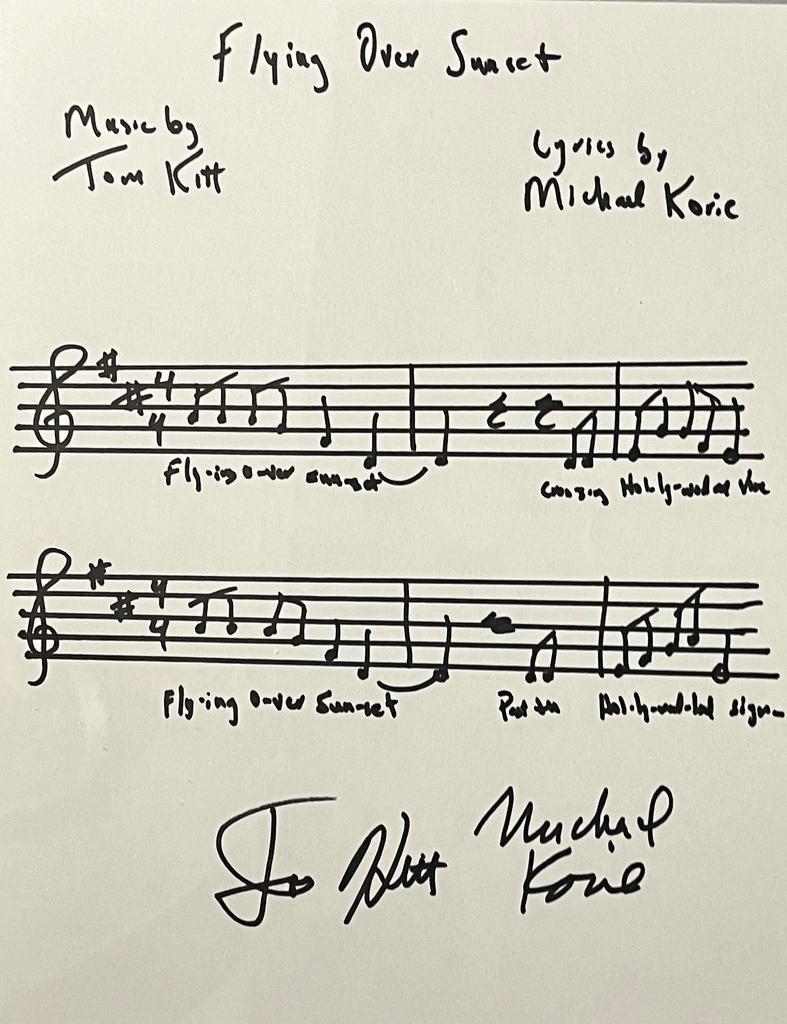 Flying Over Sunset
Music by
Tom Kitt
Lyrics by
Michael Korie
4
4
Fly-ing O-ver Sun-set Crossing Hol-ly-wood and Vine
4
4
Fly-ing O-ver Sun-set Past the Hol-ly-wood-land sign
Tom Kitt Michael
Korie